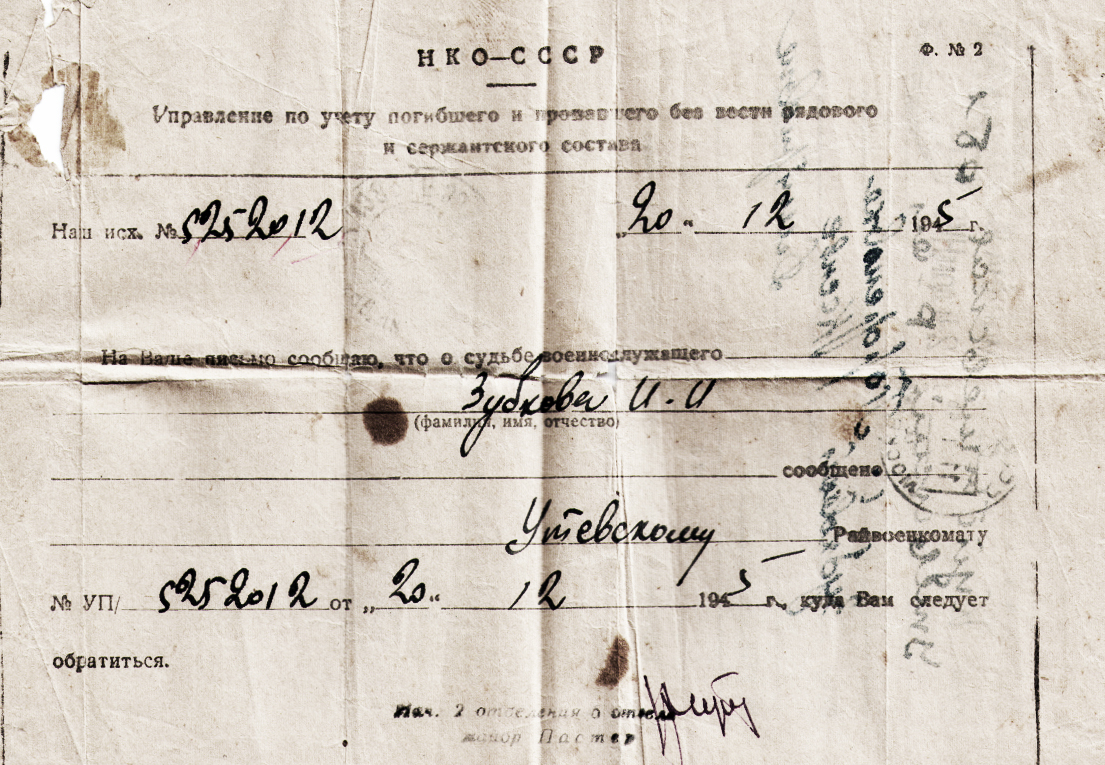 НКО—СССР
Ф. № 2
Управление по учету погибшего и пропавшего без вести рядового
и сержантского состава
Наш исх. № 5252012 „20“ 12 1945 г.
На Ваше письмо сообщаю, что о судьбе военнослужащего
Зубкова И.И
(фамилия, имя, отчество)
сообщено
Утевскому Райвоенкомату
№ УП/ 5252012 от „20“ 12 1945 г., куда Вам следует
обратиться.
Нач. 2 отделения 6 отдела
майор Пастер